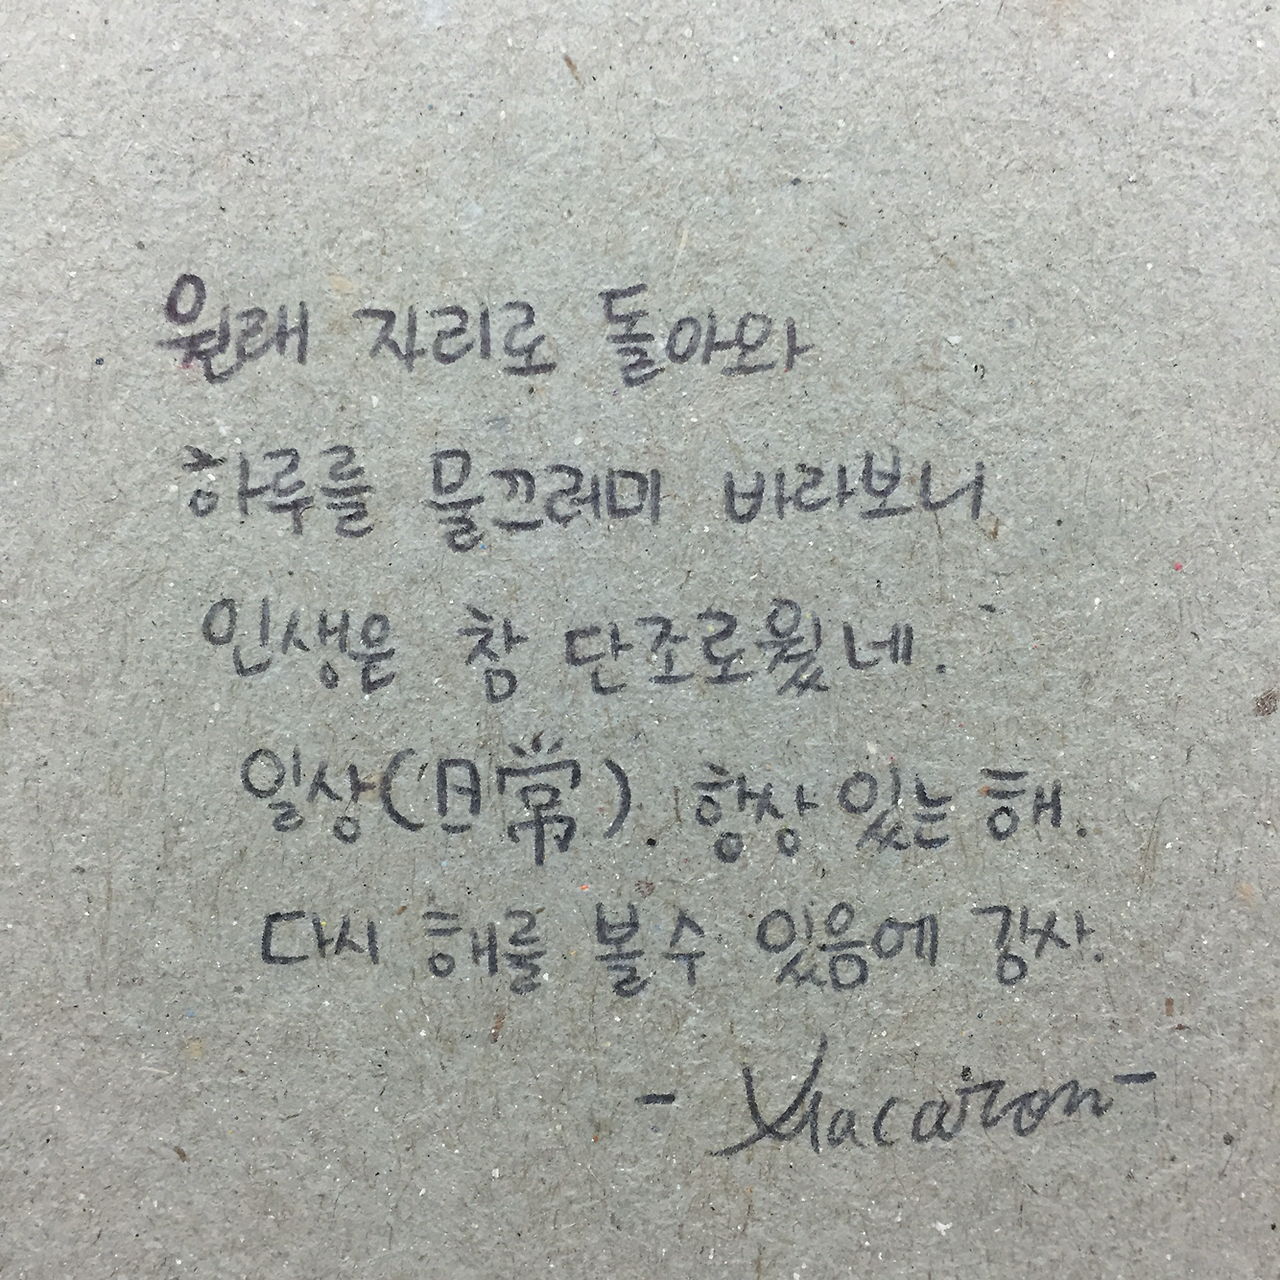 원래 자리로 돌아와
하루를 물끄레미 바라보니
인생은 참 단조로웠네.
일상(日常). 항상 있는 해.
다시 해를 볼 수 있음에 감사.
- Macaron -